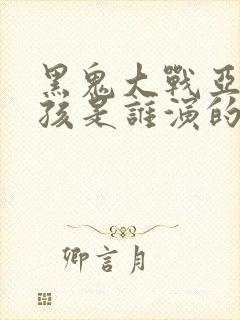 黑鬼大戰亞
孩是誰演的
卿言月